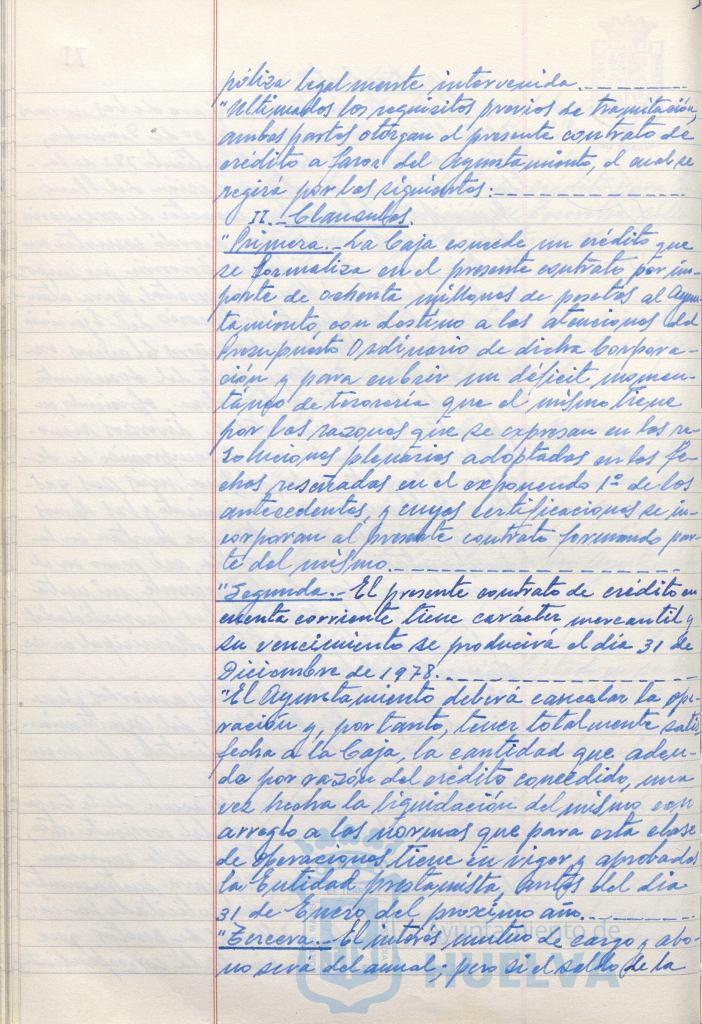 póliza legalmente intervenida.
"Ultimados los requisitos previos de tramitación,
ambas partes otorgan el presente contrato de
crédito a favor del Ayuntamiento, el cual se
regirá por las siguientes:
II.- Clausulas.
"Primera.- La Caja concede un crédito que
se formaliza en el presente contrato por im-
porte de ochenta millones de pesetas al Ayun-
tamiento, con destino a las atenciones del
Presupuesto Ordinario de dicha Corpora-
ción y para cubrir un déficit momen-
táneo de tesorería que el mismo tiene
por las razones que se expresan en las re-
soluciones plenarias adoptadas en las fe-
chas reseñadas en el exponendo 1º de los
antecedentes, y cuyas certificaciones se in-
corporan al presente contrato formando par-
te del mismo.
"Segunda.- El presente contrato de crédito en
cuenta corriente tiene carácter mercantil y
su vencimiento se producirá el día 31 de
Diciembre de 1978.
"El Ayuntamiento deberá cancelar la ope-
ración y, por tanto, tener totalmente satis
fecha a la Caja, la cantidad que adeu-
da por razón del crédito concedido, una
vez hecha la liquidación del mismo con
arreglo a las normas que para esta clase
de operaciones, tiene en vigor y aprobadas
la Entidad prestamista, antes del dia
31 de Enero del proximo año.
"Tercera.- El interés mutuo de cargo y abo-
no será del anual; pero si el saldo de la
Ayuntamiento de
HUELVA